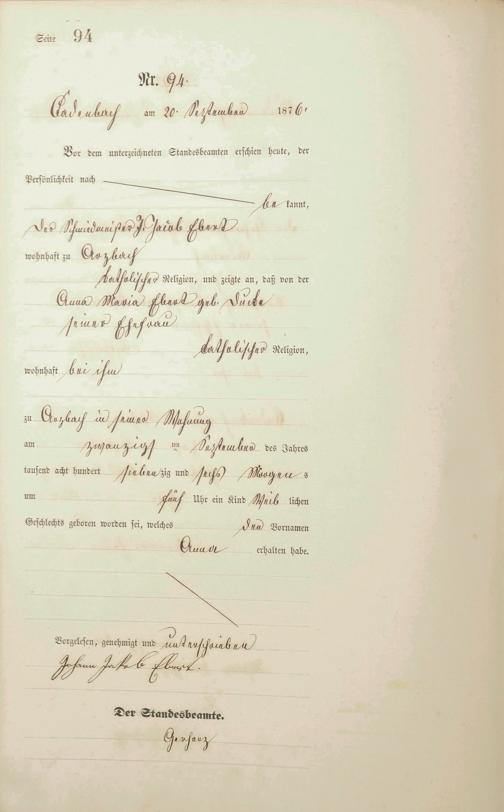 Seite 94
Nr. 94.
Cadenbach am 20. September 1876.
Vor dem unterzeichneten Standesbeamten erschien heute, der
Persönlichkeit nach
be kannt,
der Schmiedmeister J. Jacob Ebert
wohnhaft zu Arzbach
katholischer Religion, und zeigte an, daß von der
Anna Maria Ebert geb. Ducke
seiner Ehefrau
katholischer Religion,
wohnhaft bei ihm
zu Arzbach in seiner Wohnung
am zwanzigsten September des Jahres
tausend acht hundert sieben zig und sechs Morgens
um fünf Uhr ein Kind Weib lichen
Geschlechts geboren worden sei, welches den Vornamen
Anna erhalten habe.
Vorgelesen, genehmigt und unterschrieben
Johann Jakob Ebert.
Der Standesbeamte.
Gerharz